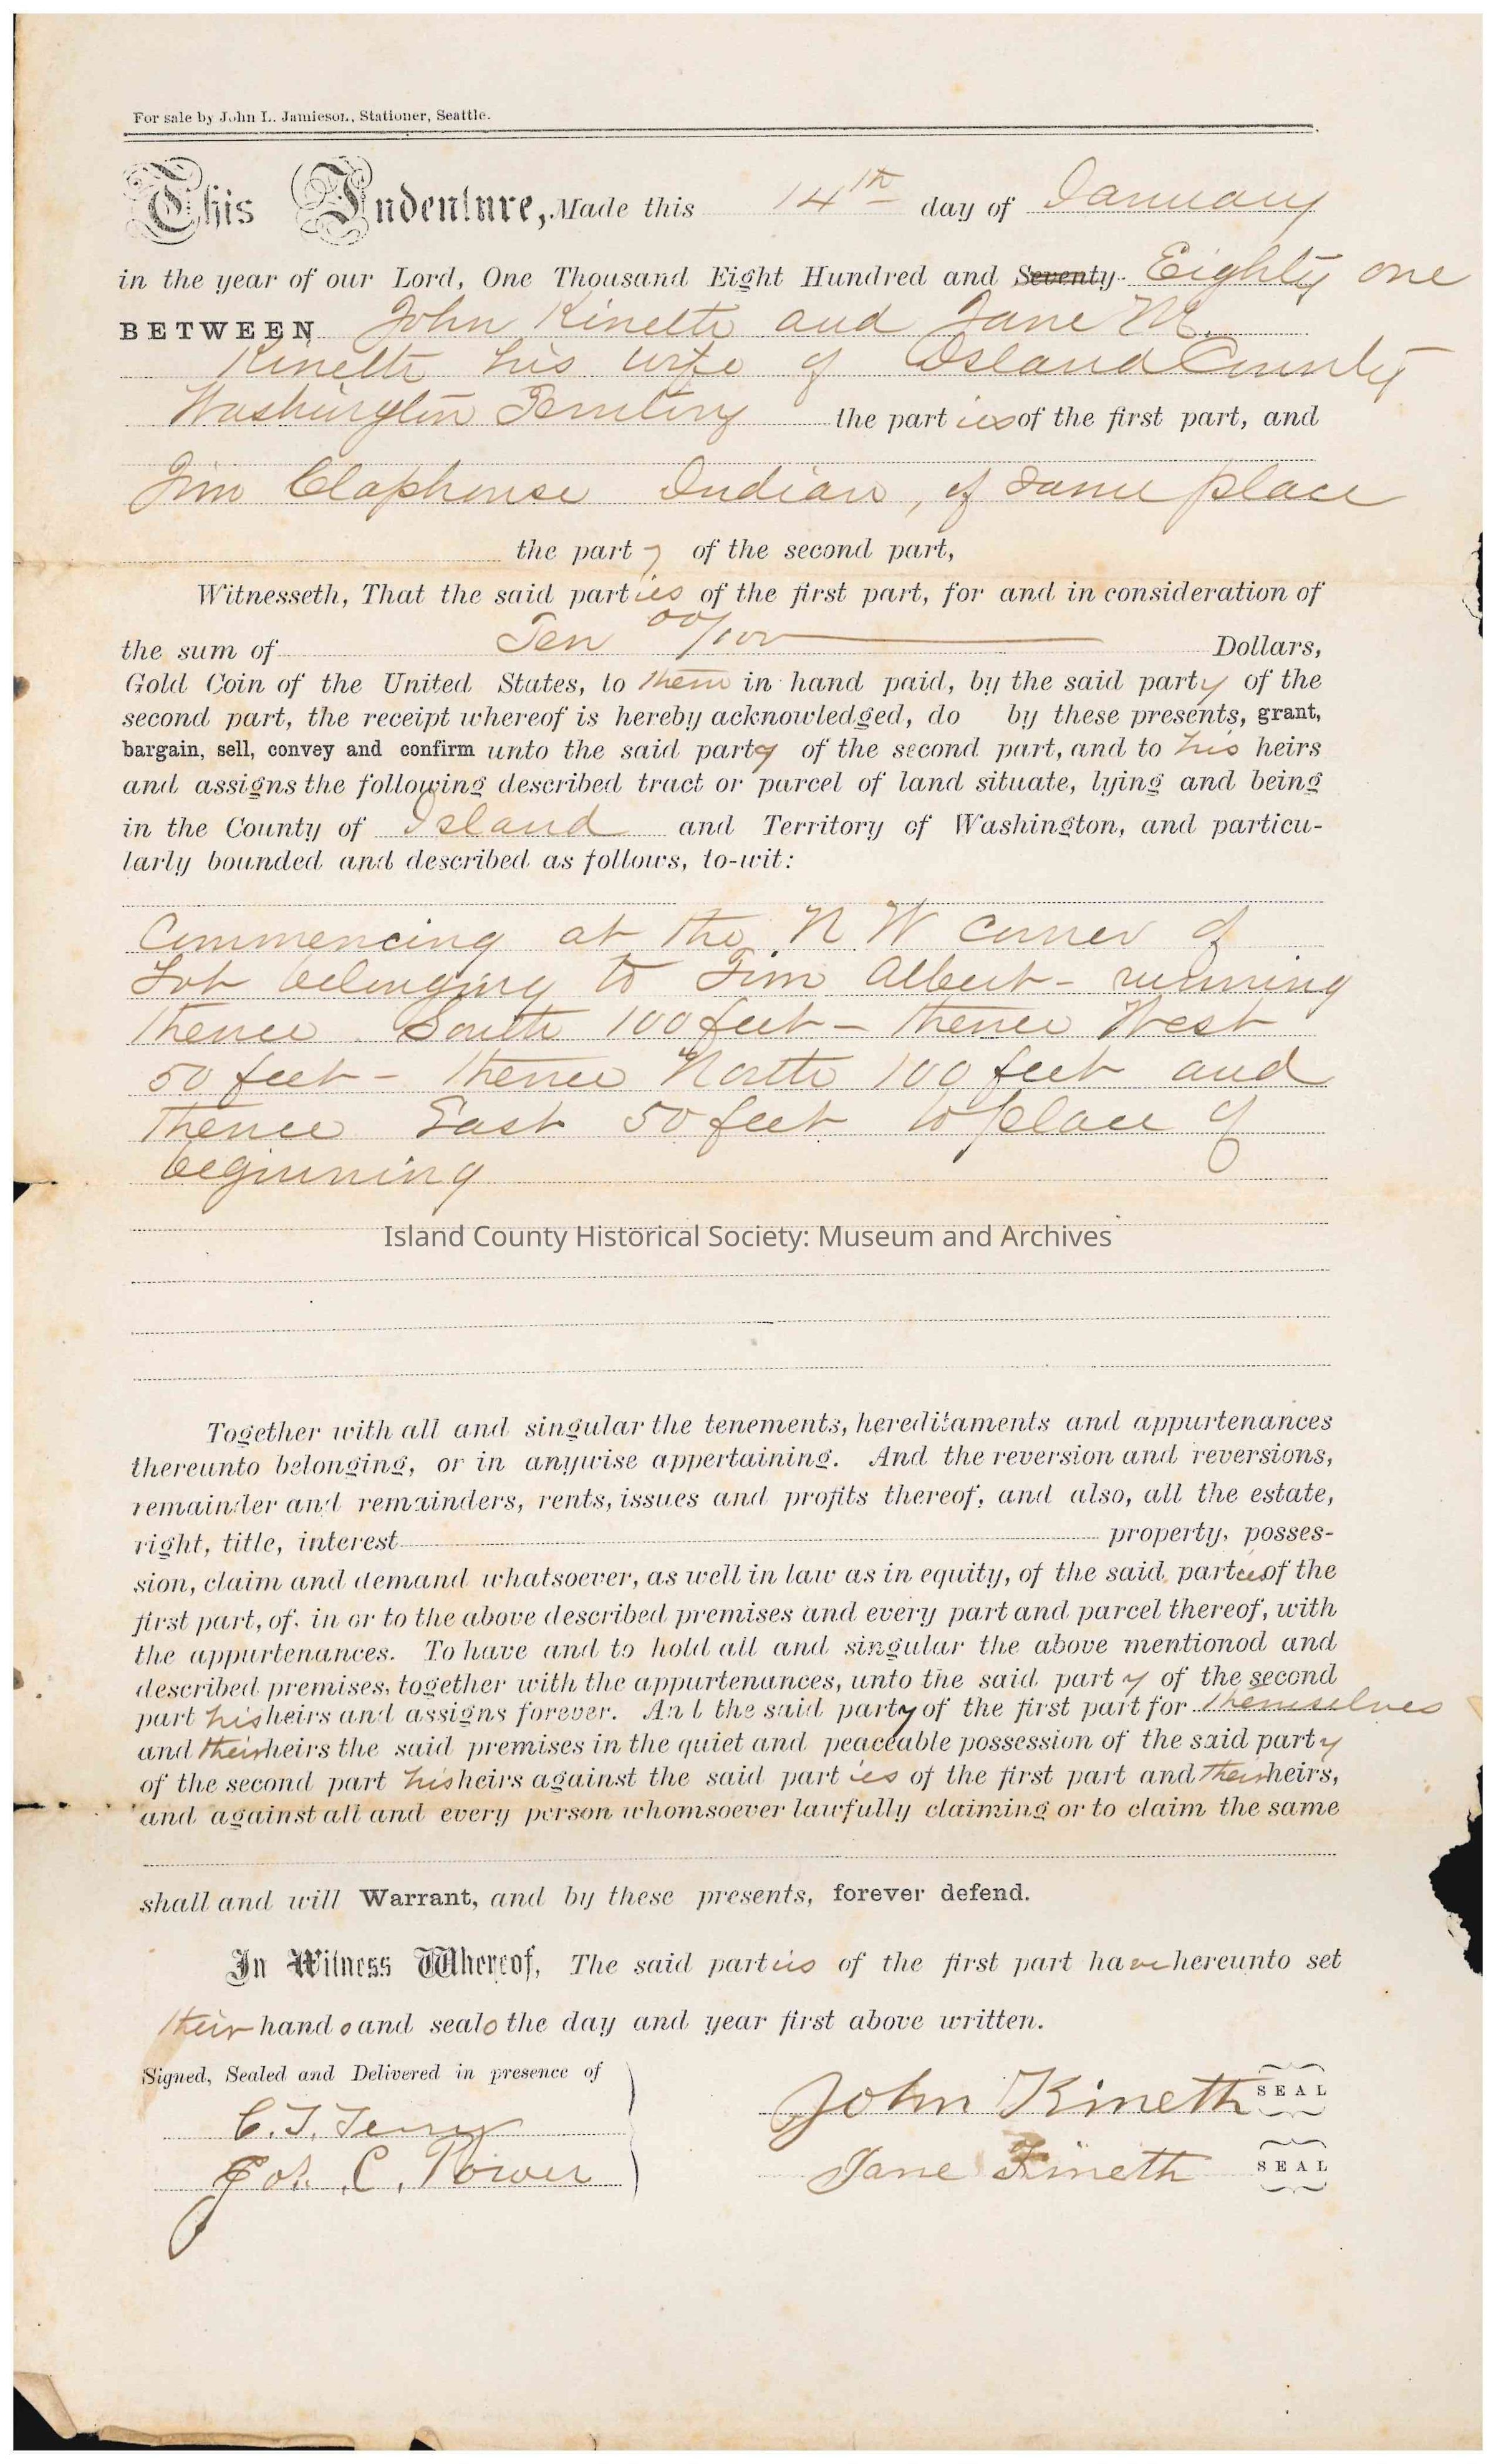 For sale by John L. Jamieson, Stationer, Seattle.
This Indenture, Made this 14th day of January
in the year of our Lord, One Thousand Eight Hundred and Seventy Eighty one
BETWEEN John Kineth and Jane M.
Kineth his wife of Island County
Washington Territory the parties of the first part, and
Jim Claphouse Indian, of same place
the party of the second part,
Witnesseth, That the said parties of the first part, for and in consideration of
the sum of Ten 00/100 Dollars,
Gold Coin of the United States, to them in hand paid, by the said party of the
second part, the receipt whereof is hereby acknowledged, do by these presents, grant,
bargain, sell, convey and confirm unto the said party of the second part, and to his heirs
and assigns the following described tract or parcel of land situate, lying and being
in the County of Island and Territory of Washington, and particu-
larly bounded and described as follows, to-wit:
Commencing at the N W corner of
Lot belonging to Jim Albert - running
thence South 100 feet - thence West
50 feet - thence North 100 feet and
thence East 50 feet to place of
beginning
Island County Historical Society: Museum and Archives
Together with all and singular the tenements, hereditaments and appurtenances
thereunto belonging, or in anywise appertaining. And the reversion and reversions,
remainder and remainders, rents, issues and profits thereof, and also, all the estate,
right, title, interest property, posses-
sion, claim and demand whatsoever, as well in law as in equity, of the said parties of the
first part, of, in or to the above described premises and every part and parcel thereof, with
the appurtenances. To have and to hold all and singular the above mentionod and
described premises, together with the appurtenances, unto the said party of the second
part his heirs and assigns forever. And the said party of the first part for themselves
and their heirs the said premises in the quiet and peaceable possession of the said party
of the second part his heirs against the said parties of the first part and their heirs,
and against all and every person whomsoever lawfully claiming or to claim the same
shall and will Warrant, and by these presents, forever defend.
In Witness Whereof, The said parties of the first part have hereunto set
their hands and seals the day and year first above written.
Signed, Sealed and Delivered in presence of
C. T. Terry
Jos. C. Power
John Kineth SEAL
Jane Kineth SEAL